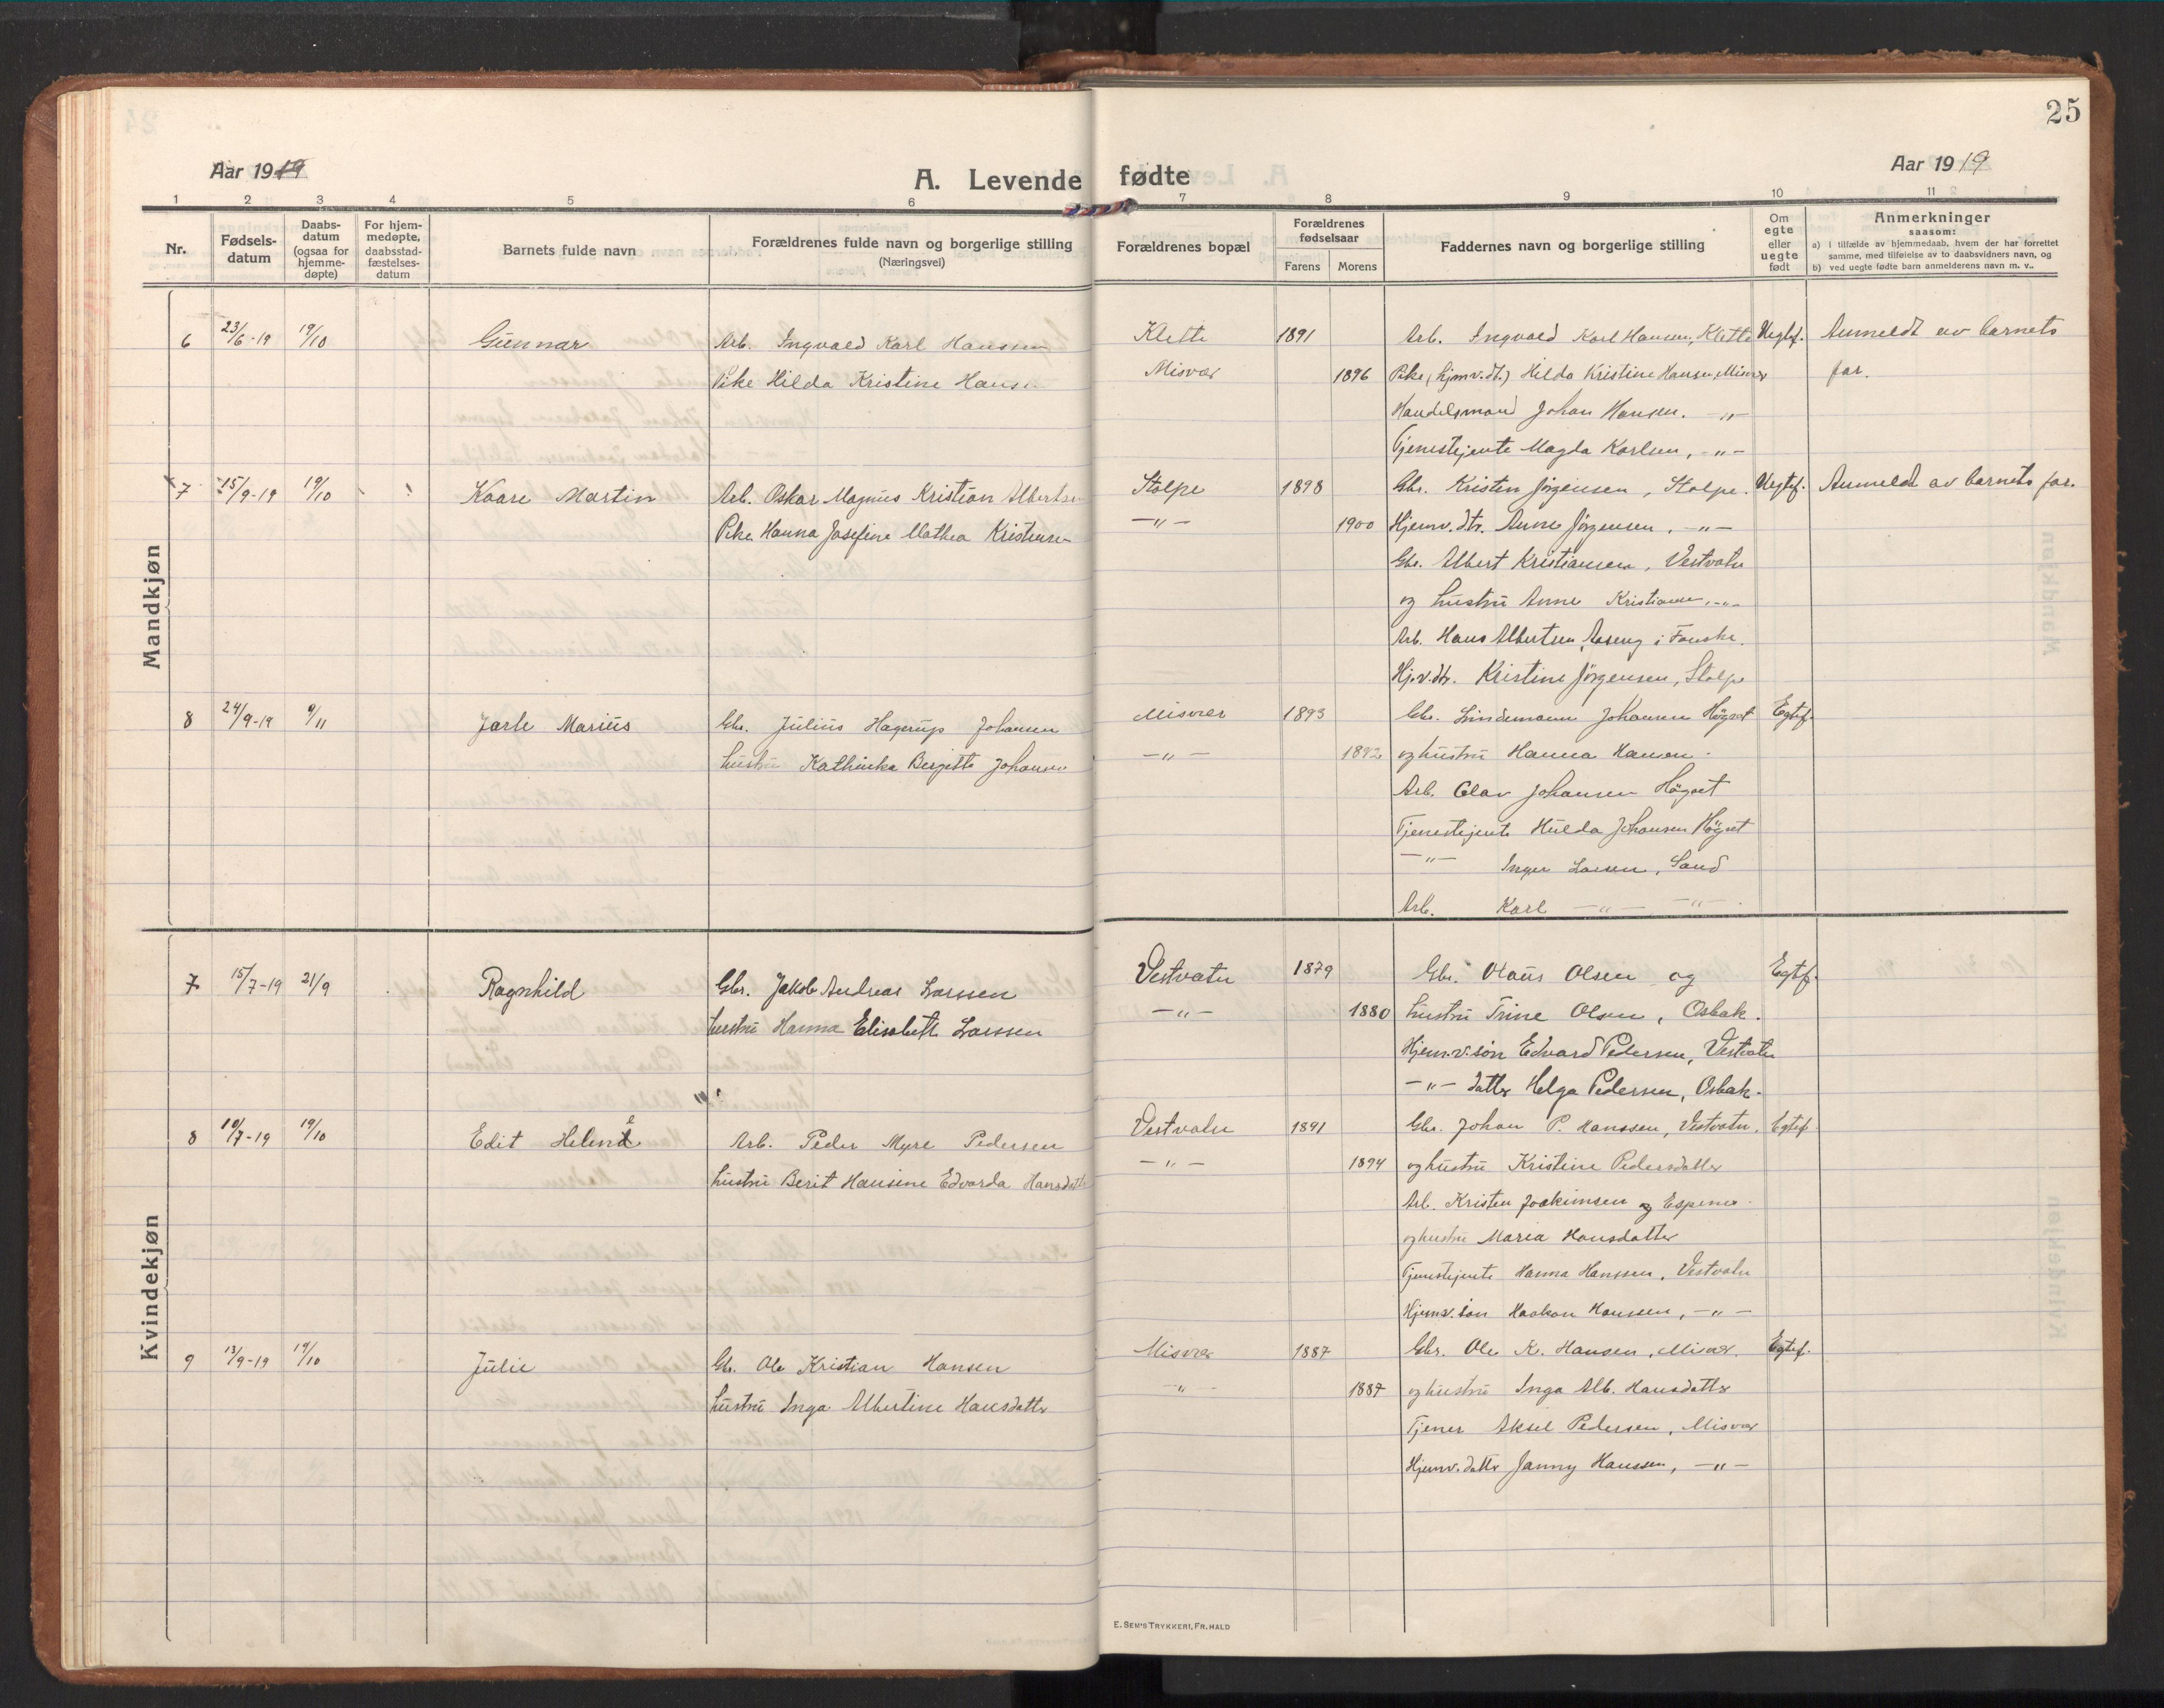 25
Aar 1919
A. Levende fødte
Aar 1919
1 2 3 4 5 6 7 8 9 10 11
Nr.
Fødsels-
datum
Daabs-
datum
(ogsaa for
hjemme-
døpte)
For hjem-
medøpte,
daabsstad-
fæstelses-
datum
Barnets fulde navn
Forældrenes fulde navn og borgerlige stilling
(Næringsvei)
Forældrenes bopæl
Forældrenes
fødselsaar
Farens Morens
Faddernes navn og borgerlige stilling
Om
egte
eller
uegte
født
Anmerkninger
saasom:
a) i tilfælde av hjemmedaab, hvem der har forrettet
samme, med tilføielse av to daabsvidners navn, og
b) ved uegte fødte barn anmelderens navn m. v..
Mandkjøn
6 23/6-19 19/10 Gunnar Arb. Ingvald Karl Hanssen Klette 1891 Arb. Ingvald Karl Hansen, Klette Uegtef. Anmeldt av barnets
Pike Hilda Kristine Hans Misvær 1896 Pike (hjemv.dt.) Hilda Kristine Hansen, Misvær far.
Handelsmand Johan Hansen. -"-
Tjenestejente Magda Karlsen, -"-
7 15/9-19 19/10 Kaare Martin Arb. Oskar Magnus Kristian Albertsen Stolpe 1898 Gbr. Kristen Jörgensen, Stolpe. Uegtef. Anmeldt av barnets far.
Pike Hanna Josefine Mathea Kristensen -"- 1900 Hjemv. dtr. Anne Jörgensen, -"-
Gbr. Albert Kristiansen, Vestvatn
og hustru Anne Kristiansen, -"-
Arb. Hans Albertsen, Aaseng i Fauske.
Hj.v.dtr. Kristine Jörgensen, Stolpe
8 24/9-19 9/11 Jarle Marius Gbr. Julius Hagerup Johansen Misvær 1893 Gbr. Lindemann Johansen Högset Egtef.
hustru Kathinka Bergitte Johansen -"- 1892 og hustru Hanna Hansen.
Arb. Olav Johansen Högset
Tjenestejente Hulda Johansen Högset
-"- Inger Larsen, Sand
Arb. Karl -"- -"-
Kvindekjøn
7 15/7-19 21/9 Ragnhild Gbr. Jakob Andreas Larssen Vestvatn 1879 Gbr. Olaus Olsen og Egtef.
hustru Hanna Elisabeth Larssen -"- 1880 hustru Trine Olsen, Osbak.
Hjem.v.sön Edvard Pedersen, Vestvatn
-"- datter Helga Pedersen, Osbak.
8 10/7-19 19/10 Edit Helene Arb. Peder Myre Pedersen Vestvatn 1891 Gbr. Johan P. Hanssen, Vestvatn, Egtef.
hustru Berit Hansine Edvarda Hansdatter -"- 1894 og hustru Kristine Pedersdatter
Arb. Kristen Joakimsen og Espenes.
og hustru Maria Hansdatter
Tjenestejente Hanna Hanssen, Vestvatn
Hjemv. sön Haakon Hanssen, -"-
9 13/9-19 19/10 Julie Gb. Ole Kristian Hansen Misvær 1887 Gbr. Ole K. Hansen, Misvær. Egtef.
hustru Inga Albertine Hansdatter -"- 1887 og hustru Inga Alb. Hansdatter
Tjener Aksel Pedersen, Misvær
Hjemv. datter Janny Hanssen, -"-
E. SEM'S TRYKKERI, FR.HALD